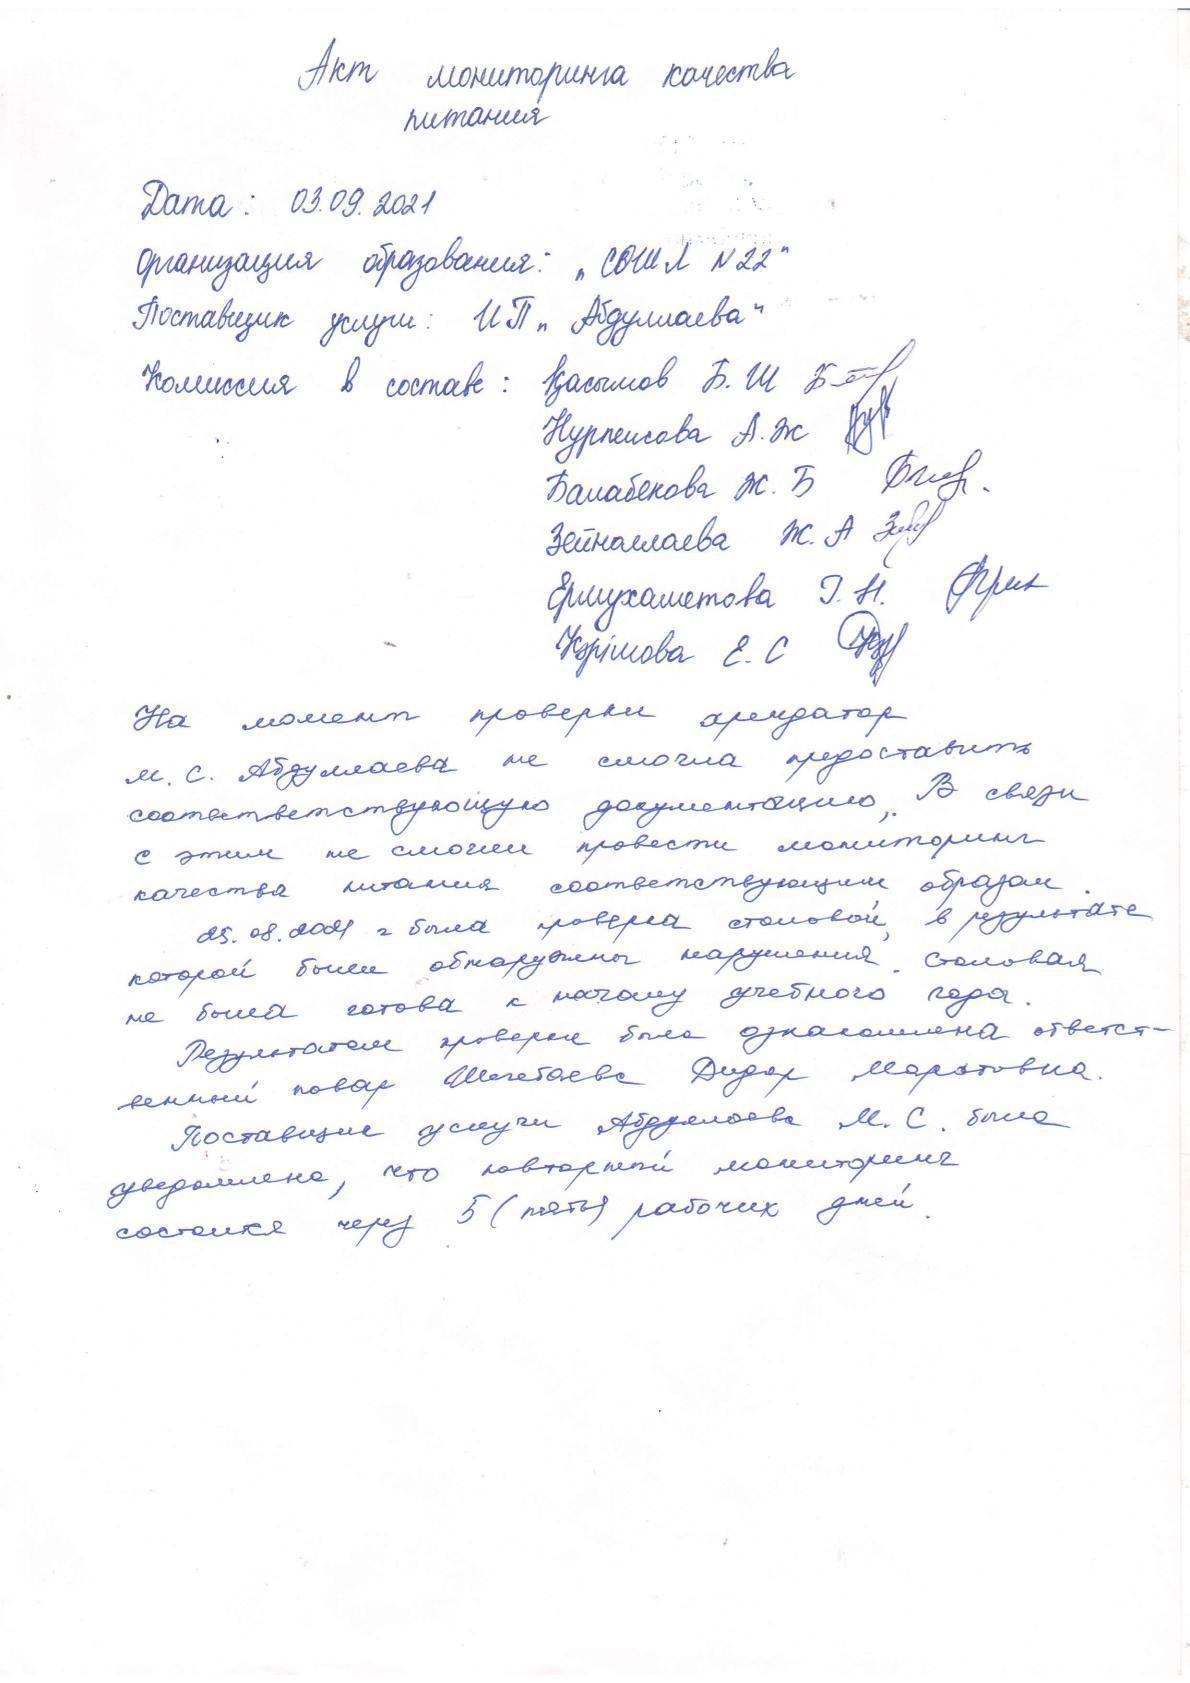 Акт мониторинга качества
питания
Дата: 03.09.2021
Организация образования: „СОШЛ №22"
Поставщик услуги: ИП „Абдуллаева"
Комиссия в составе: Қасымов Б.Ш
Нурпеисова А.Ж
Балабекова Ж.Б
Зейнаелаева Ж.А
Ермухаметова Г.Н.
Кәрімова Е.С
На момент проверки арендатор
М.С. Абдуллаева не смогла предоставить
соответствующую документацию,. В связи
с этим не смогли провести мониторинг
качества питания соответствующим образом.
25.08.2021 г была проверка столовой, в результате
которой были обнаружены нарушения. Столовая
не была готова к началу учебного года.
Результатом проверки была ознакомлена ответст-
венный повар Дидар Маратовна.
Поставщик услуги Абдуллаева М.С. была
уведомлена, что повторный мониторинг
состоится через 5 (пять) рабочих дней.